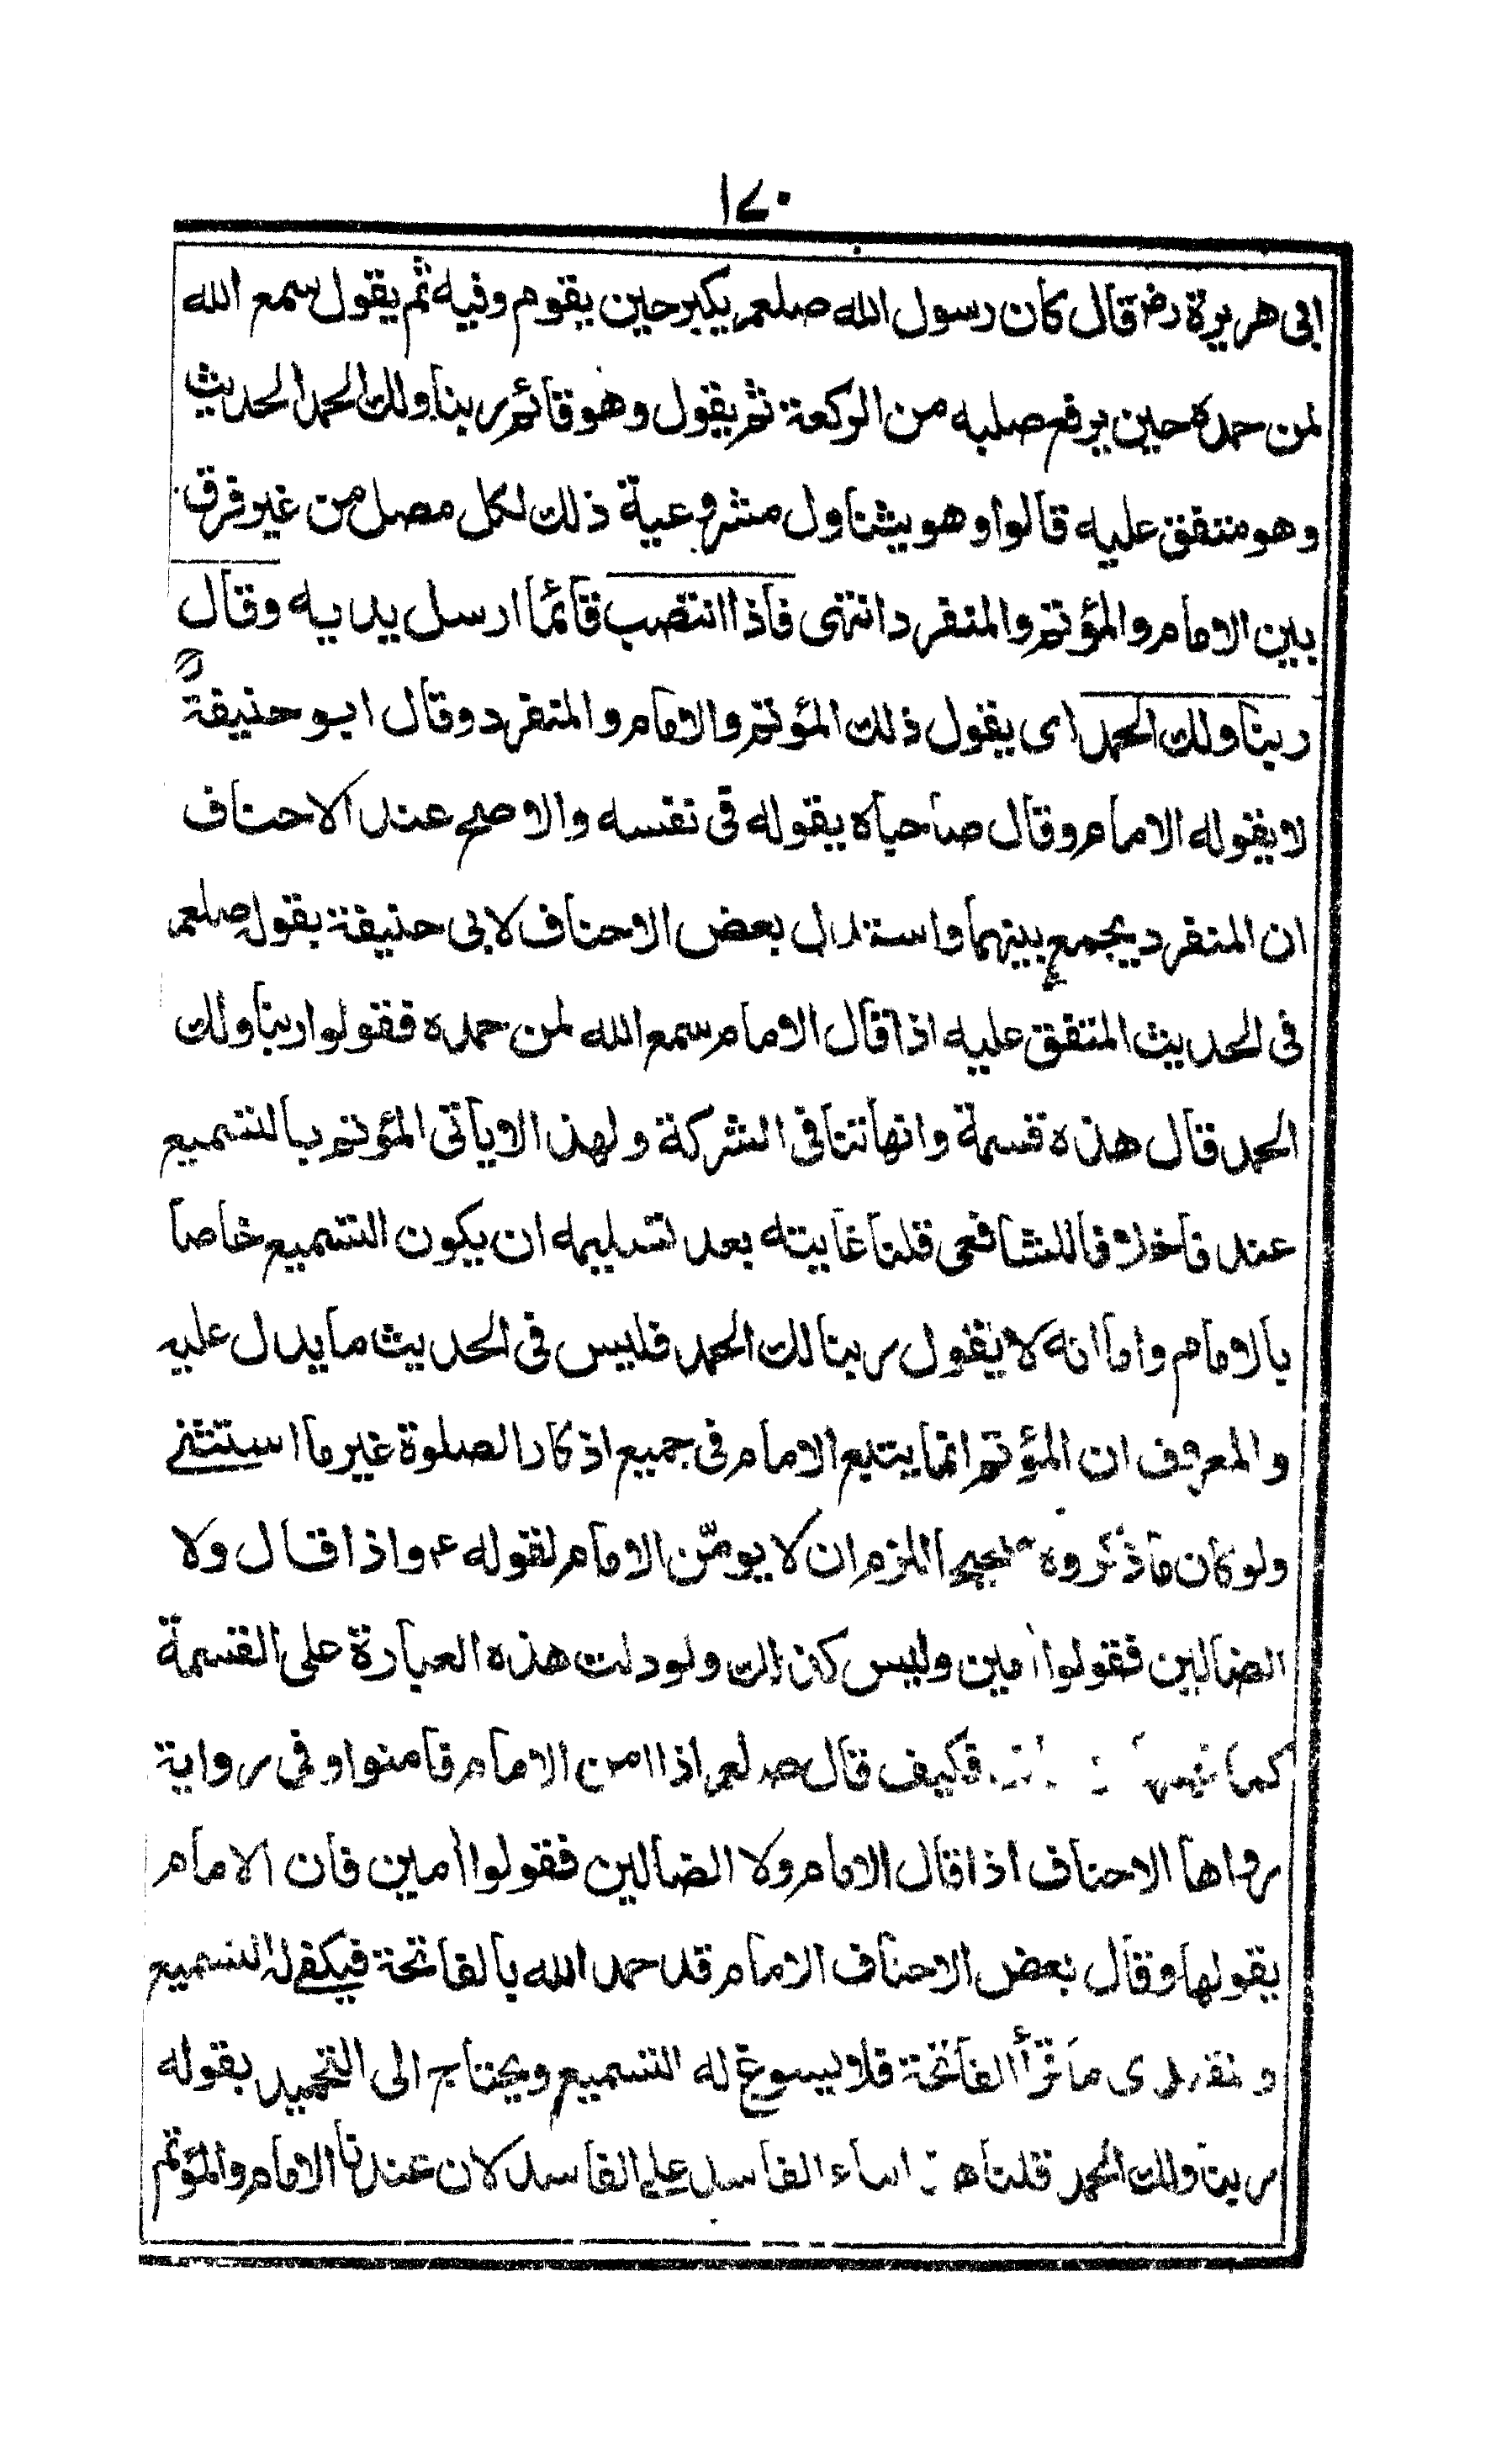 ١٧٠
ابى هريرة رض قال كان رسول الله صلعم يكبر حين يقوم وفيه ثم يقول سمع الله
لمن حمده حين يرفع صلبه من الركعة ثم يقول وهو قائم ربنا ولك الحمد الحديث
وهو متفق عليه قالوا وهو يتناول مشروعية ذلك لكل مصل من غير فرق
بين الامام والمؤتم والمنفرد انتهى فاذا انتصب قائما ارسل يديه وقال
ربنا ولك الحمد اى يقول ذلك المؤتم والامام والمنفرد وقال ابو حنيفة
لا يقوله الامام وقال صاحباه يقوله فى نفسه والاصح عند الاحناف
ان المنفرد يجمع بينهما واستدل بعض الاحناف لابى حنيفة بقوله صلعم
فى الحديث المتفق عليه اذا قال الامام سمع الله لمن حمده فقولوا ربنا ولك
الحمد قال هذه قسمة وانها تنافى الشركة ولهذا لا ياتى المؤتم بالتسميع
عندنا خلافا للشافعى قلنا غايته بعد تسليمه ان يكون التسميع خاصا
بالامام واما انه لا يقول ربنا لك الحمد فليس فى الحديث ما يدل عليه
والمعروف ان المؤتم انما يتبع الامام فى جميع اذكار الصلوة غير ما استثنے
ولو كان ما ذكروه صحيحا لزم ان لا يومّن الامام لقوله ع واذا قال ولا
الضالين فقولوا امين وليس كذلك ولو دلت هذه العبارة على القسمة
كما فكيف قال صلعم اذا امن الامام فامنوا وفى رواية
رواها الاحناف اذا قال الامام ولا الضالين فقولوا أمين فان الامام
يقولها وقال بعض الاحناف الامام قد حمد الله بالفاتحة فيكفے له التسميع
و ما قرأ الفاتحة فلا يسوغ له التسميع ويحتاج الى التحميد بقوله
ربنا ولك الحمد قلنا هذا بناء الفاسد على الفاسد لان عندنا الامام والمؤتم